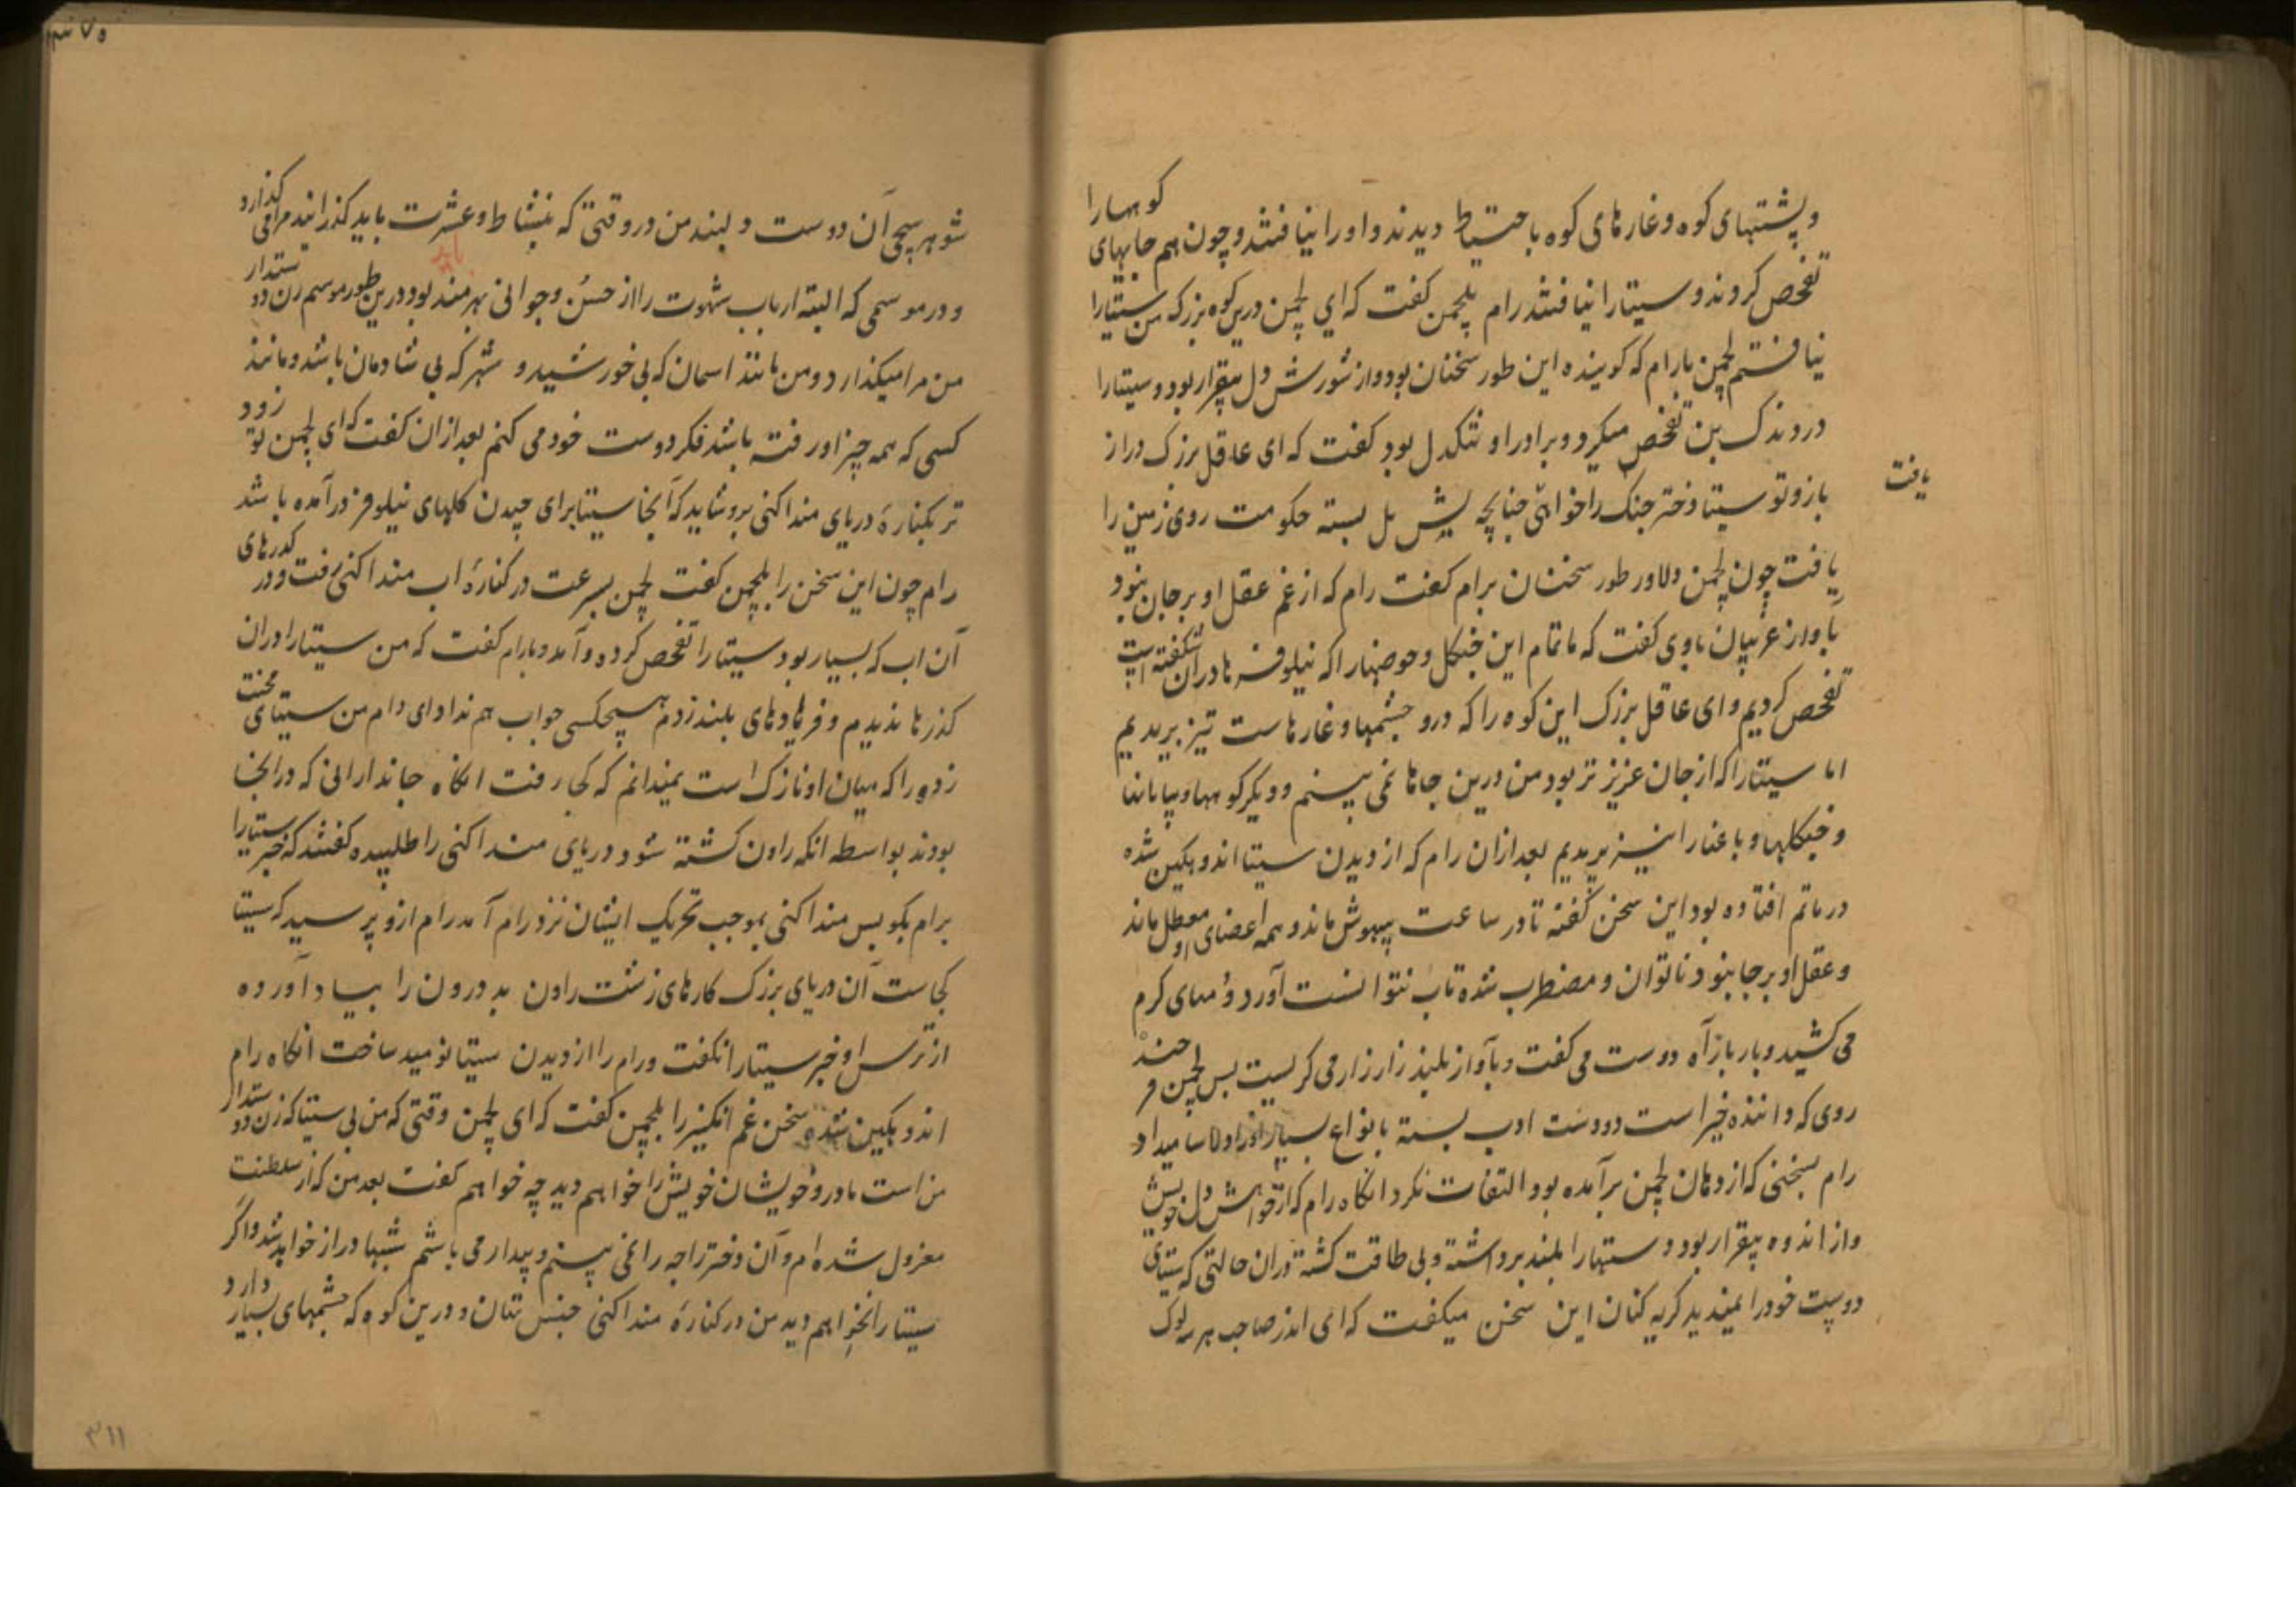 و پشتهای کوه و غارهای کوه باحتیاط دیدند و او را نیافتند و چون هم جایهای کوهها را
تفحص کردند و سیتا را نیافتند رام بلچمن گفت که ای لچمن درین کوه بزرگ من سیتا را
نیافتم لچمن با رام که گوینده این طور سخنان بود و از شورش دل بیقرار بود و سیتا را
در دندک بن تفحص میکرد و برادر او تنکدل بود گفت که ای عاقل بزرگ دراز
بازو تو سیتا دختر جنک را خواهی چنانچه بشن بل بسته حکومت روی زمین را
یافت
یافت چون لچمن دلاور طور سخنان برام گفت رام که از غم عقل او بر جا نبود
با واز غریبان باوی گفت که ما تمام این جنکل و حوضها را که نیلوفرها دران شکفته است
تفحص کردیم و ای عاقل بزرگ این کوه را که درو چشمها و غارهاست نیز بریدیم
اما سیتا را که از جان عزیزتر بود من درین جاها نمی بینم و دیکر کوهها و بیابانها
و جنکلها و باغها را نیز بریدیم بعد ازان رام که از دیدن سیتا اندوهکین شده
در ماتم افتاده بود این سخن گفته تا دو ساعت بیهوش ماند و همه اعضای او معطل ماند
و عقل او بر جا نبود ناتوان و مضطرب شده تاب نتوانست آورد و دمهای کرم
می کشید و بار بار آه دوست می گفت و بآواز بلند زار زار می کریست پس لچمن هر چند
روی که داننده خیر است و دوست ادب بسته بانواع بسیار او را دلاسا میداد
رام بسخنی که از دهان لچمن برآمده بود التفات نکرد انکاه رام که از خواهش دل خویش
و از اندوه بیقرار بود دستها را بلند برداشته و بی طاقت کشته دران حالتی که سیتای
دوست خود را نمیدید کریه کنان این سخن میکفت که ای اندر صاحب هر سه لوک
شوهر سچی آن دوست دلبند من در وقتی که بنشاط و عشرت باید کذرانید مرا می کذارد
و در موسمی که البته ارباب شهوت را از حسن و جوانی بهرمند بود درین طور موسم زن دوستدار
من مرا میکذارد و من مانند اسمان که بی خورشید و شهر که بی شادمان باشد و مانند
کسی که همه چیز او رفته باشد فکر دوست خود می کنم بعد ازان گفت که ای لچمن تو زود
تر بکناره دریای منداکنی برو شاید که آنجا سیتا برای چیدن کلهای نیلوفر درآمده باشد
رام چون این سخن را بلچمن گفت لچمن بسرعت در کناره اب منداکنی رفت و در کدرهای
آن اب که بسیار بود سیتا را تفحص کرده و آمد و بارام گفت که من سیتا را دران
کذرها ندیدم و فریادهای بلند زدم هیچکسی جواب هم نداد ای رام من سیتای محنت
زده را که میان او نازک است نمیدانم که کجا رفت انکاه جاندارانی که در انجا
بودند بواسطه انکه راون کشته شود دریای منداکنی را طلبیده گفتند که خبر سیتا را
برام بگو پس منداکنی بموجب تحریک ایشان نزد رام آمد رام ازو پرسید که سیتا
کجاست آن دریای بزرگ کارهای زشت راون بد درون را بیاد آورده
از ترس او خبر سیتا را نکفت و رام را از دیدن سیتا نومید ساخت انکاه رام
اندوهکین شده سخن غم انکیز را بلچمن گفت که ای لچمن وقتی که من بی سیتا که زن دوستدار
من است مادر و خویشان خویش را خواهم دید چه خواهم گفت بعد من که از سلطنت
معزول شده ام و آن دختر راجه را نمی بینم و بیدار می باشم شبها دراز خواهد شد و اگر
سیتا را نخواهم دید من در کناره منداکنی جنس تتان و درین کوه که چشمهای بسیار دارد
۳۱۱